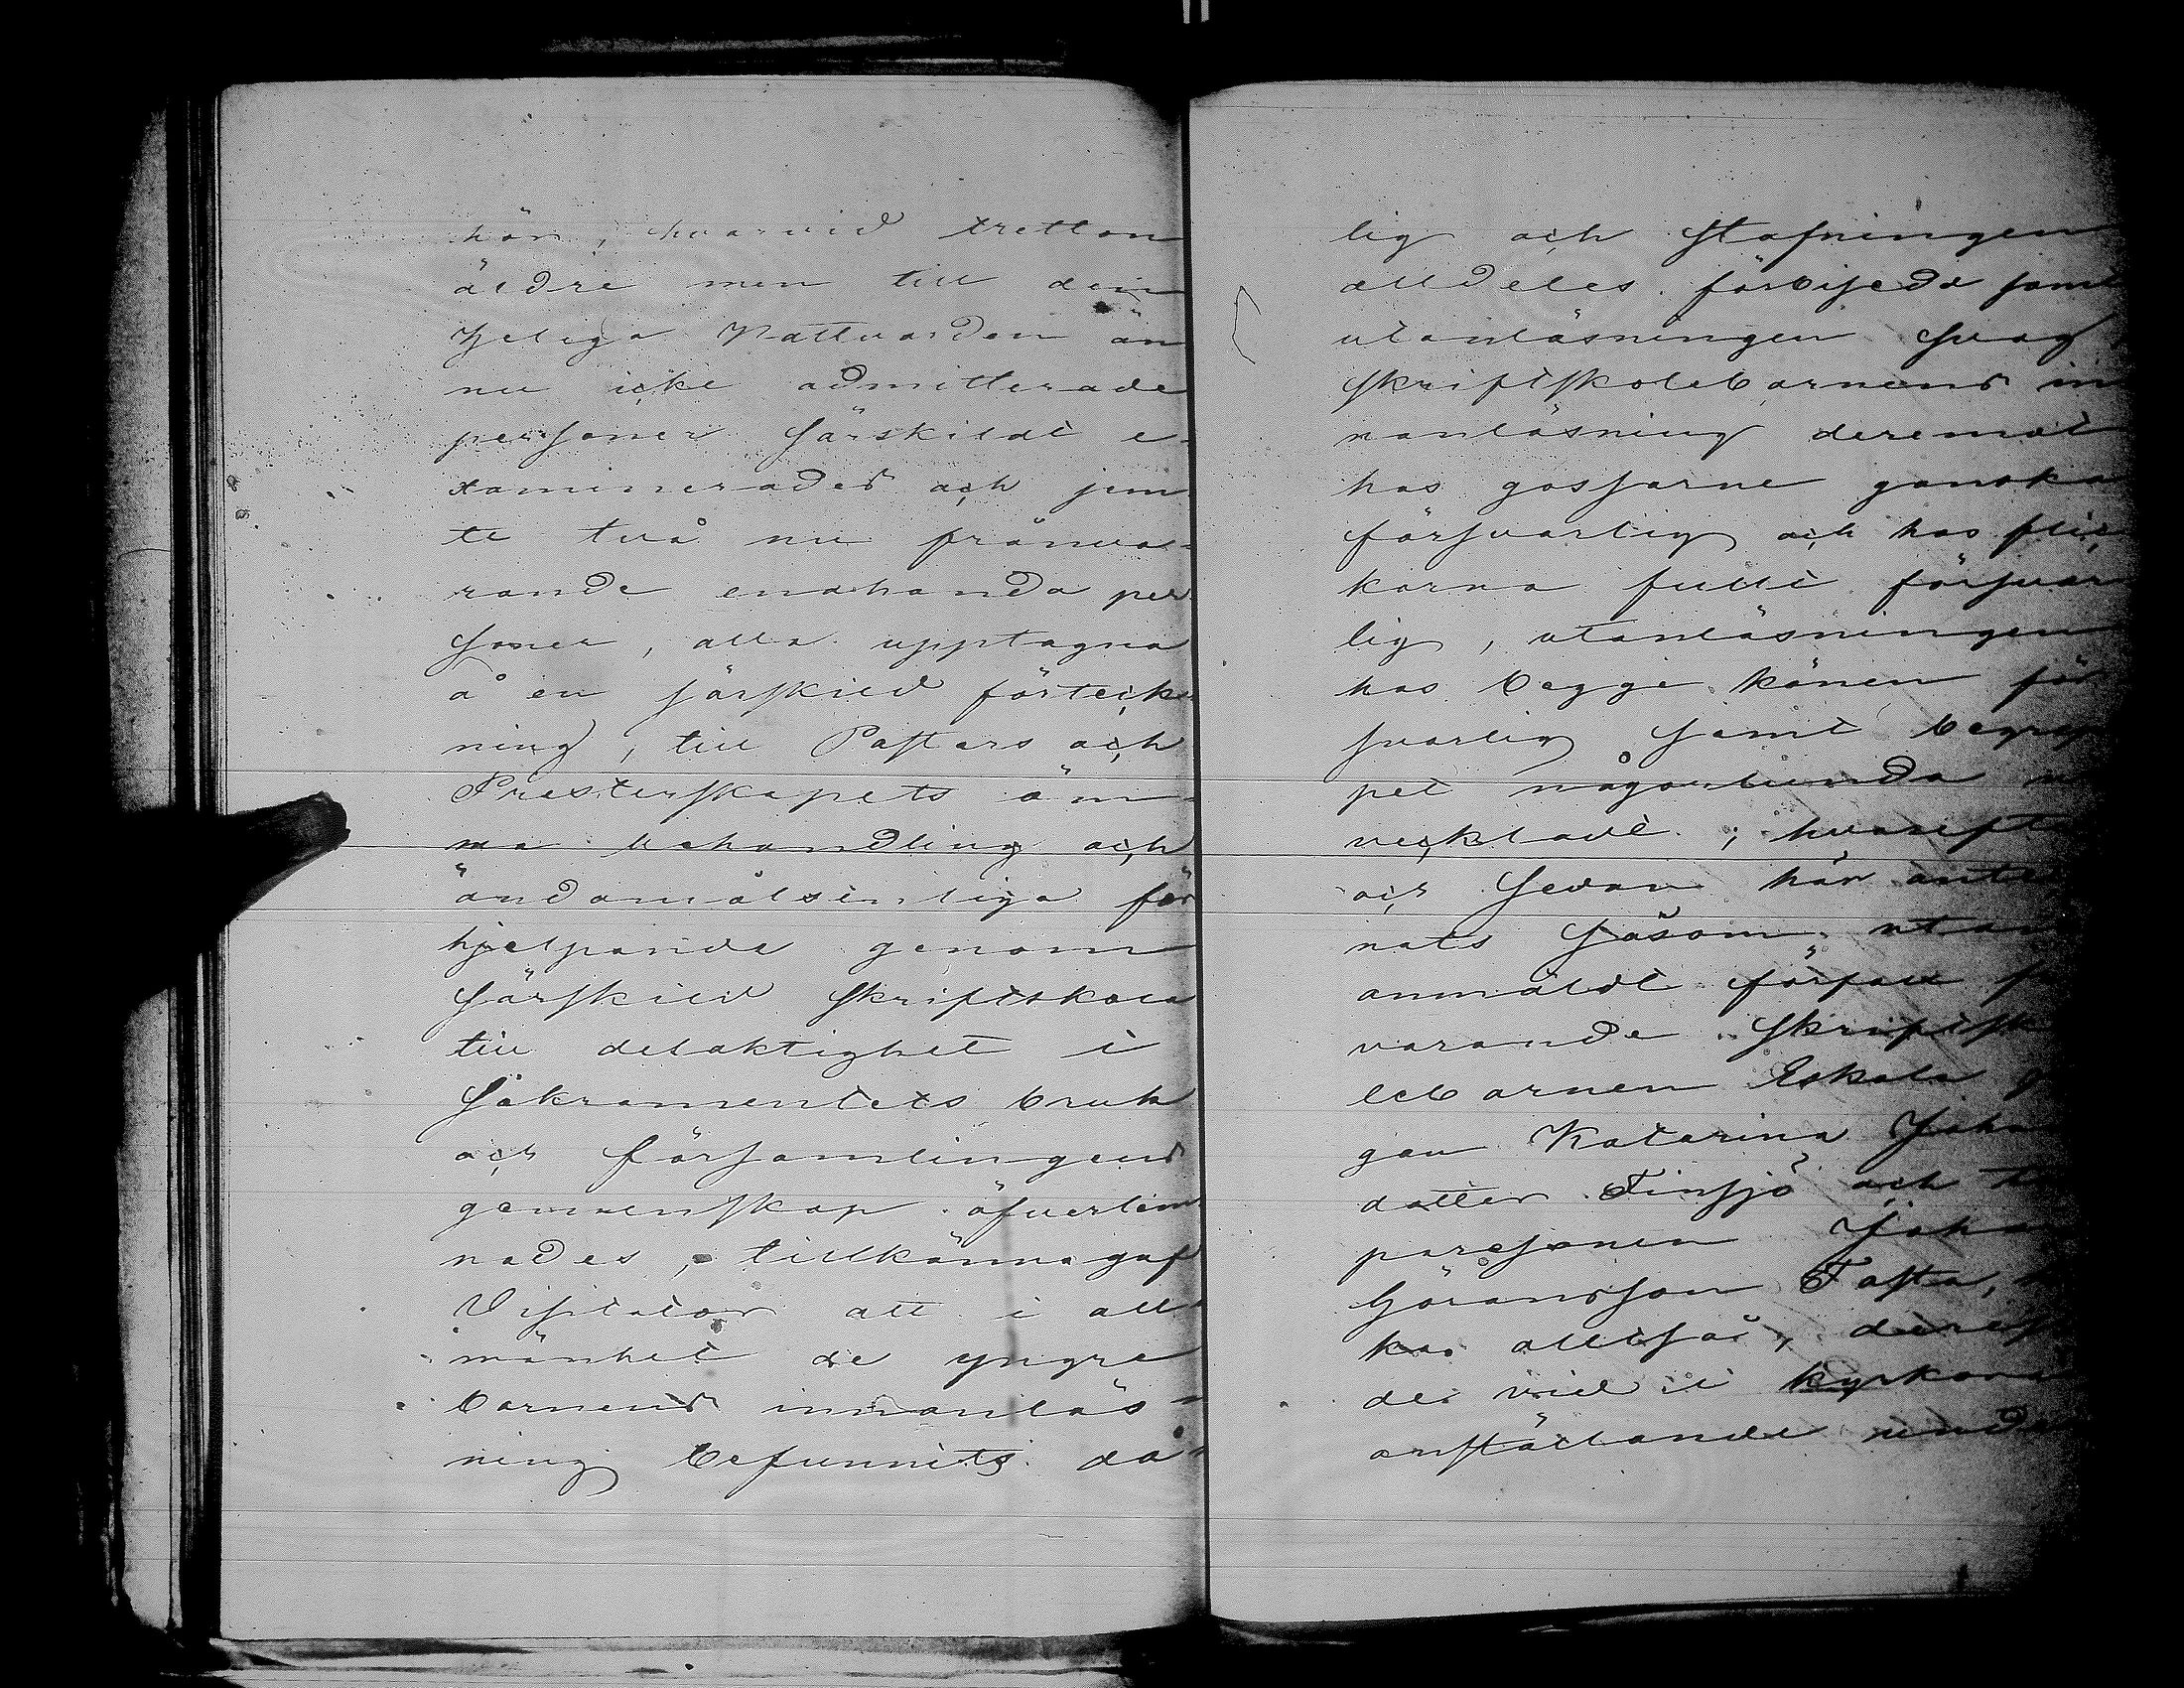 hör, hvarvid tretton
äldre men till den
Heliga Nattvarden än
nu icke admitterade
personer särskildt e-
xaminerades och jem
te två nu frånva-
rande enahanda per
soner, alla upptagna
å en särskild förteck
ning, till Pastors och
Presterskapets öm-
ma behandling och
ändamålsenliga för
hjelpande genom
särskild skriftskola
till delaktighet i
Sakramentets bruk
och församlingens
gemenskap öfverlem
nades, tillkännagaf
Visitator att i all
mänhet de yngre
barnens innanläs-
ning befunnits då-
lig och stafningen
alldeles förbisedd samt
utanläsningen svag,
skriftskolebarnens in
nanläsning deremot
hos gossarne ganska
försvarlig och hos flic
korna fullt försvar
lig, utanläsningen
hos begge könen för
svarlig samt begrep
pet någorlunda
veckladt; hvarefter
och sedan här anteck
nats såsom utan
anmäldt förfall från
varande skriftsko
lebarnen Eskola
gan Katarina Johans
dotter Finsjö och
parcsonen Johan
Göransson Tasta,
ka alltså, derest
de vid i kyrkan
anställande under